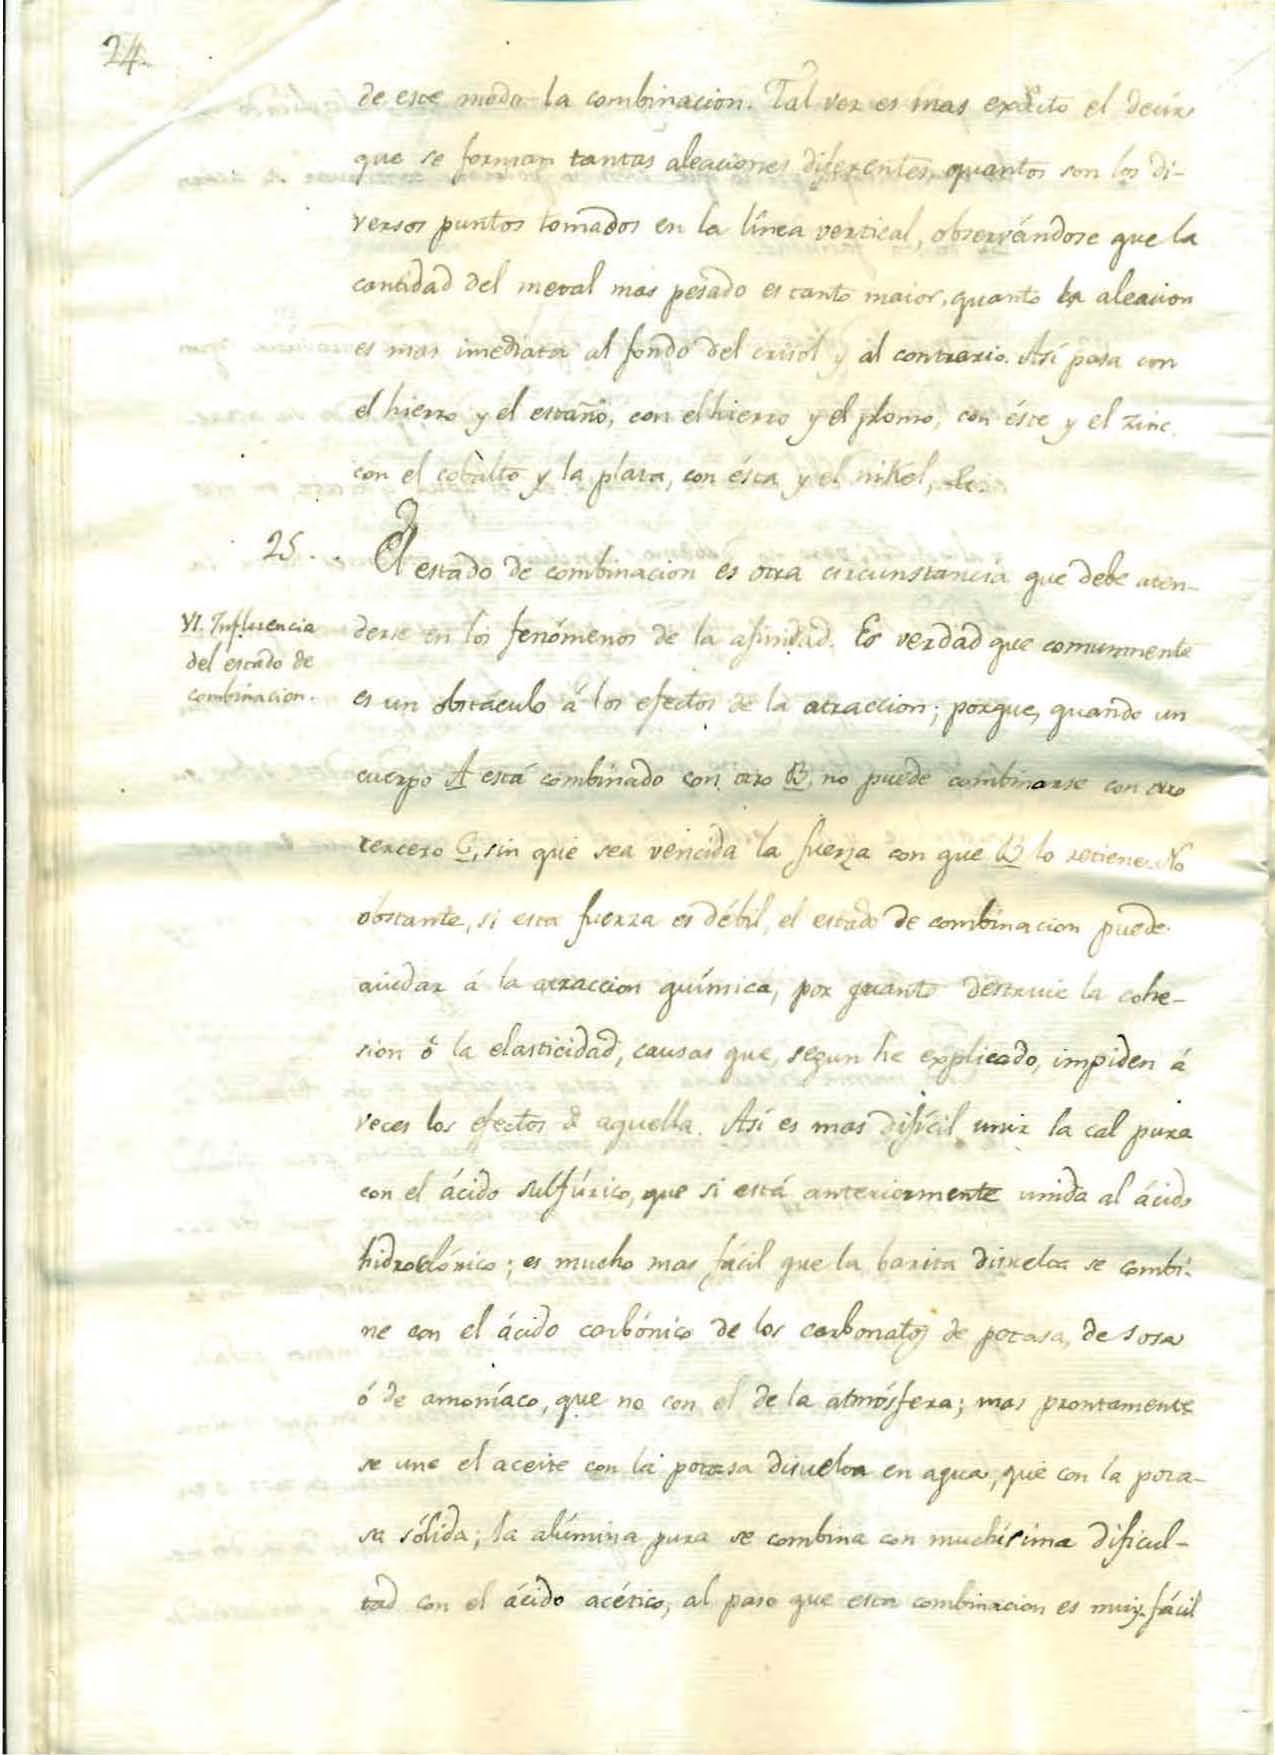 24.
de este modo la combinacion. Tal vez es mas exâcto el decir
que se forman tantas aleaciones diferentes, quantos son los di-
versos puntos tomados en la línea vertical, observándose que la
cantidad del metal mas pesado es tanto maior, quanto la aleacion
es mas imediata al fondo del crisol y al contrario. Así pasa con
el hierro y el estaño, con el hierro y el plomo, con éste y el zinc,
con el cobalto y la plata, con ésta y el nikel, &c.
25. El estado de combinacion es otra circunstancia que debe aten-
VI. Influencia
del estado de
combinacion.
derse en los fenómenos de la afinidad. Es verdad que comunmente
es un obstáculo á los efectos de la atraccion; porque, quando un
cuerpo A está combinado con otro B, no puede combinarse con otro
tercero C, sin que sea vencida la fuerza con que B lo retiene. No
obstante, si esta fuerza es débil, el estado de combinacion puede
aiudar á la atraccion química, por quanto destruie la cohe-
sion ó la elasticidad, causas que, segun he explicado, impiden á
veces los efectos de aquella. Así es mas difícil unir la cal pura
con el ácido sulfúrico, que si está anteriormente unida al ácido
hidroclórico; es mucho mas fácil que la barita disuelta se combi-
ne con el ácido carbónico de los carbonatos de potasa, de sosa
ó de amoníaco, que no con el de la atmósfera; mas prontamente
se une el aceite con la potasa disuelta en agua, que con la pota-
sa sólida; la alúmina pura se combina con muchísima dificul-
tad con el ácido acético, al paso que esta combinacion es muy fácil